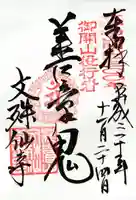 奉拝 平成二十年
十二月二十四日
御開山役行者
善童鬼
文殊仙寺